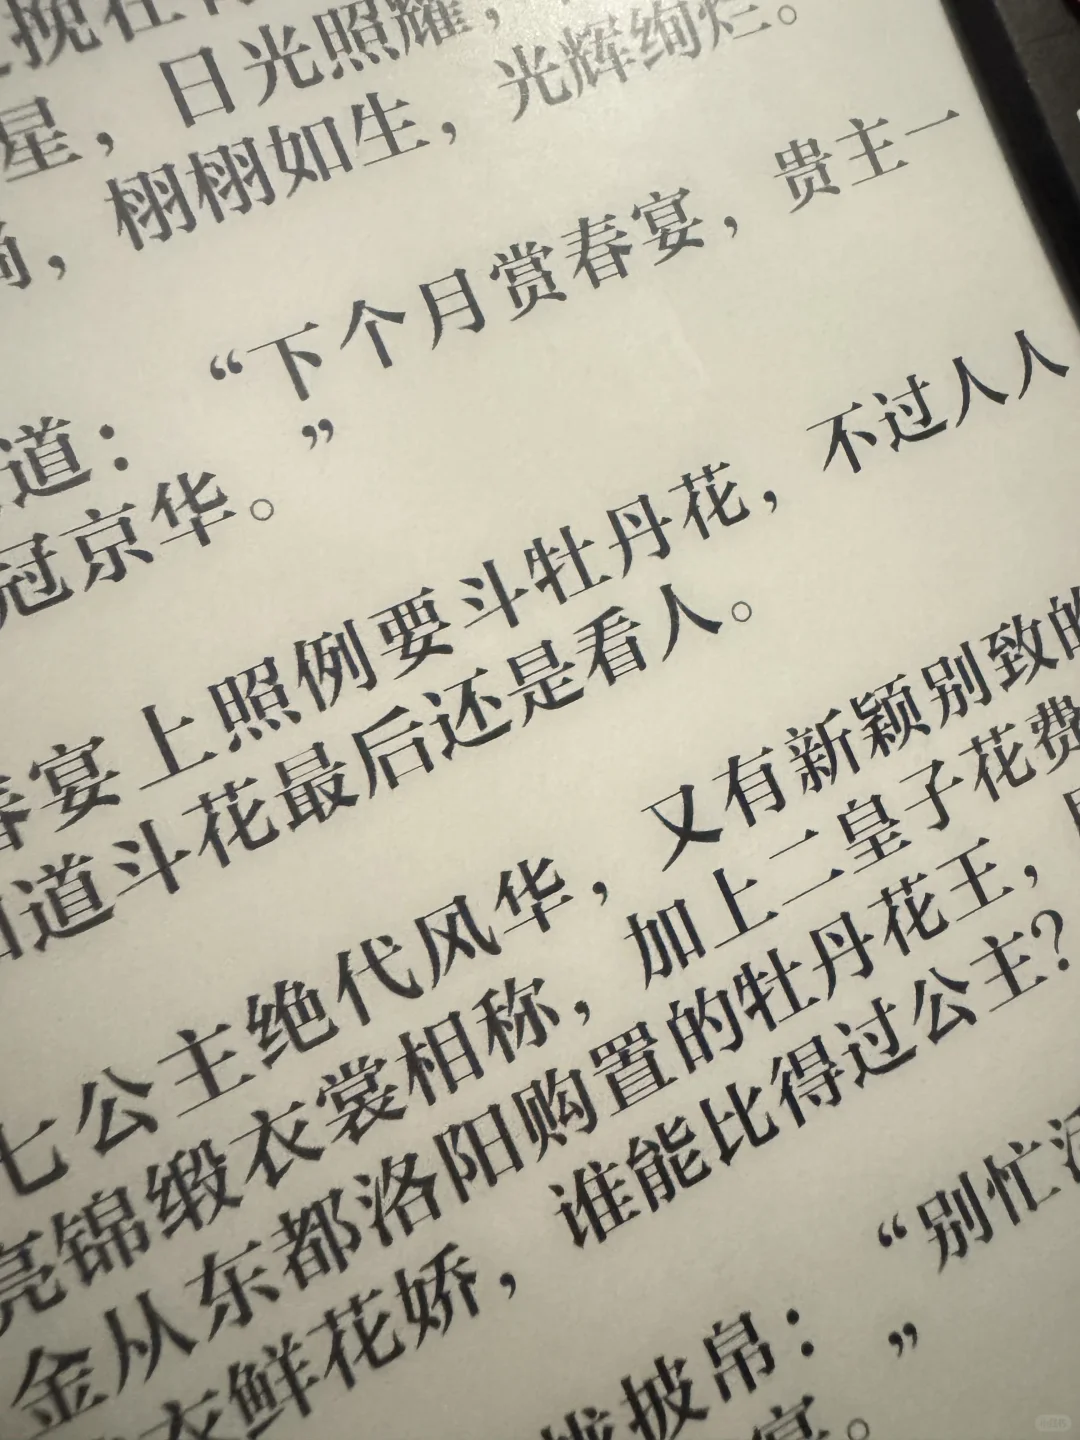 挽在
星，日光照耀，
，栩栩如生，光辉绚烂。
道：“下个月赏春宴，贵主一
冠京华。”
春宴上照例要斗牡丹花，不过人人
道斗花最后还是看人。
七公主绝代风华，又有新颖别致的
亮锦缎衣裳相称，加上二皇子花费
金从东都洛阳购置的牡丹花王，
衣鲜花娇，谁能比得过公主？
披帛：“别忙活
宴。”